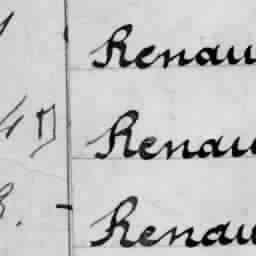 Renau
Renau
Renau